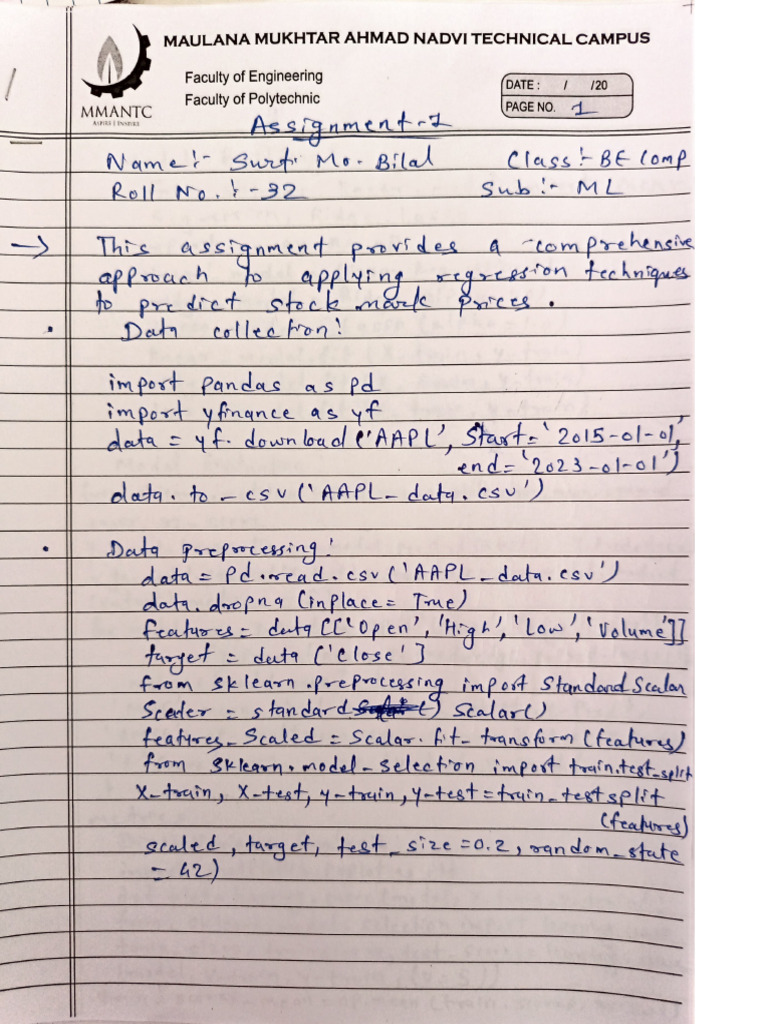 MAULANA MUKHTAR AHMAD NADVI TECHNICAL CAMPUS
Faculty of Engineering
Faculty of Polytechnic
DATE : / /20
PAGE NO. 1
MMANTC
ASPIRE | INSPIRE
Assignment-1
Name:- Surti Mo. Bilal Class:- BE Comp
Roll No.:- 32 Sub:- ML
→ This assignment provides a comprehensive
approach to applying regression techniques
to predict stock mark prices.
• Data collection:
import pandas as pd
import yfinance as yf
data = yf. download ('AAPL', Start='2015-01-01',
end='2023-01-01')
data. to_csv ('AAPL_data.csv')
• Data preprocessing:
data = pd.read.csv ('AAPL_data.csv')
data.dropna (inplace = True)
features = data [['Open', 'High', 'Low', 'Volume']]
target = data ('Close']
from sklearn.preprocessing import Standard Scalar
Scaler = standard () Scalar()
features_Scaled = Scalar.fit_transform (features)
from sklearn.model_selection import train.test_split
X-train, X-test, y-train, y-test = train_test split
(features)
scaled, target, test_size = 0.2, random_state
= 42)